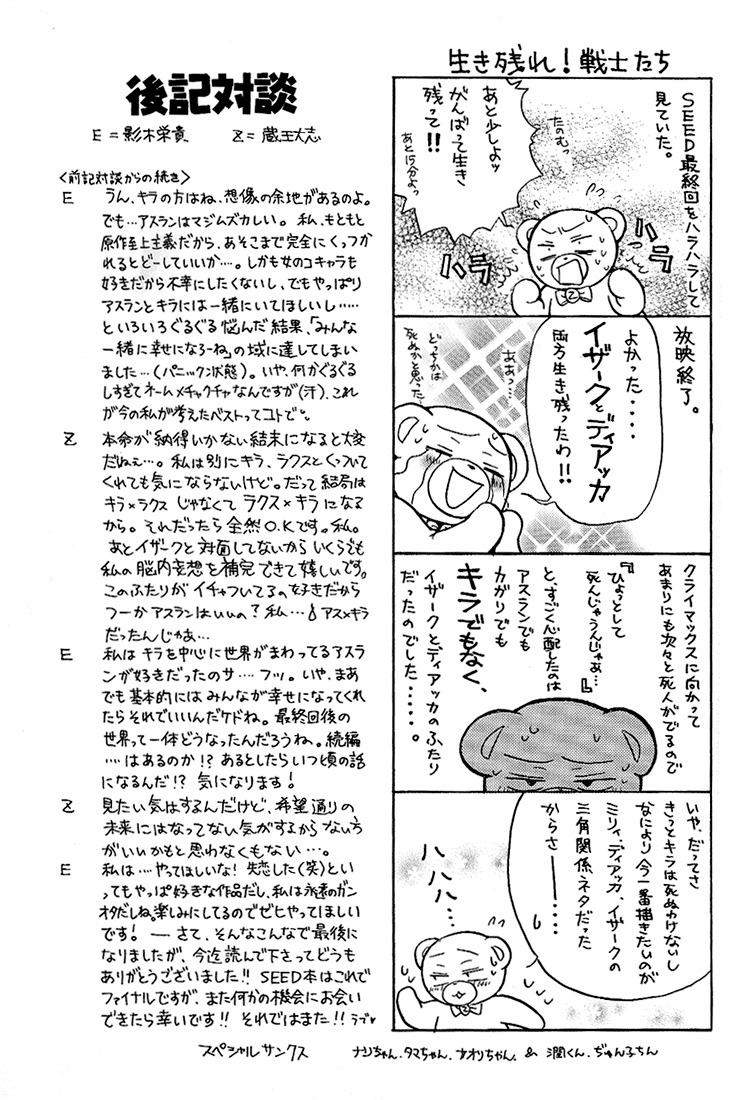 生き残れ!戦士たち
SEED最終回をハラハラして
見ていた。
たのむっ
あと少しよッ
がんばって生き
残って!!
あと15分よっ
ハラ
ハラ
放映終了。
よかった・・・・
イザークとディアッカ
両方生き残ったわ!!
ああっ…
どっちかは
死ぬかと思った
クライマックスに向かって
あまりにも次々と死人がでるので
『ひょっとして
死んじゃうんじゃあ…』
と、すごく心配したのは
アスランでも
カガリでも
キラでもなく、
イザークとディアッカのふたり
だったのでした・・・・・。
いや、だってさ
きっとキラは死ぬわけないし
なにより今一番描きたいのが
ミリィ、ディアッカ、イザークの
三角関係ネタだった
からさー・・・・
ハハハ…
後記対談
E=影木栄貴 Z=蔵王大志
<前記対談からの続き>
E うん、キラの方はね、想像の余地があるのよ。
でも…アスランはマジムズカしい。私、もともと
原作至上主義だから、あそこまで完全にくっつか
れるとどーしていいか…。しかも女のコキャラも
好きだから不幸にしたくないし、でもやっぱり
アスランとキラには一緒にいてほしいし……
といろいろぐるぐる悩んだ結果、「みんな
一緒に幸せになろーね」の域に達してしまい
ました…(パニック状態)。いや、何かぐるぐる
しすぎてネームメチャクチャなんですが(汗)、これ
が今の私が考えたベストってコトで。
Z 本命が納得いかない結末になると大変
だねぇ…。私は別にキラ、ラクスとくっついて
くれても気にならないけど。だって結局は
キラ×ラクスじゃなくてラクス×キラになる
から。それだったら全然O.Kです。私。
あとイザークと対面してないからいくらでも
私の脳内妄想を補完できて嬉しいです。
このふたりがイチャついてるの好きだから
つーかアスランはいいの?私…アス×キラ
だったんじゃあ…
E 私はキラを中心に世界がまわってるアスラ
ンが好きだったのサ…フッ。いや、まあ
でも基本的にはみんなが幸せになってくれ
たらそれでいいんだケドね。最終回後の
世界って一体どうなったんだろうね。続編
…はあるのか!?あるとしたらいつ頃の話
になるんだ!?気になります!
Z 見たい気はするんだけど、希望通りの
未来にはなってない気がするからない方
がいいかもと思わなくもない…。
E 私は…やってほしいな!失恋した(笑)とい
ってもやっぱ好きな作品だし、私は永遠のガン
オタだしね。楽しみにしてるのでゼヒやってほしい
です!―さて、そんなこんなで最後に
なりましたが、今迄読んで下さってどうも
ありがとうございました!!SEED本はこれで
ファイナルですが、また何かの機会にお会い
できたら幸いです!!それではまた!!ラブ♥
スペシャルサンクス ナリちゃん、タマちゃん、ナオリちゃん、&潤くん、ぢゅん子ちん